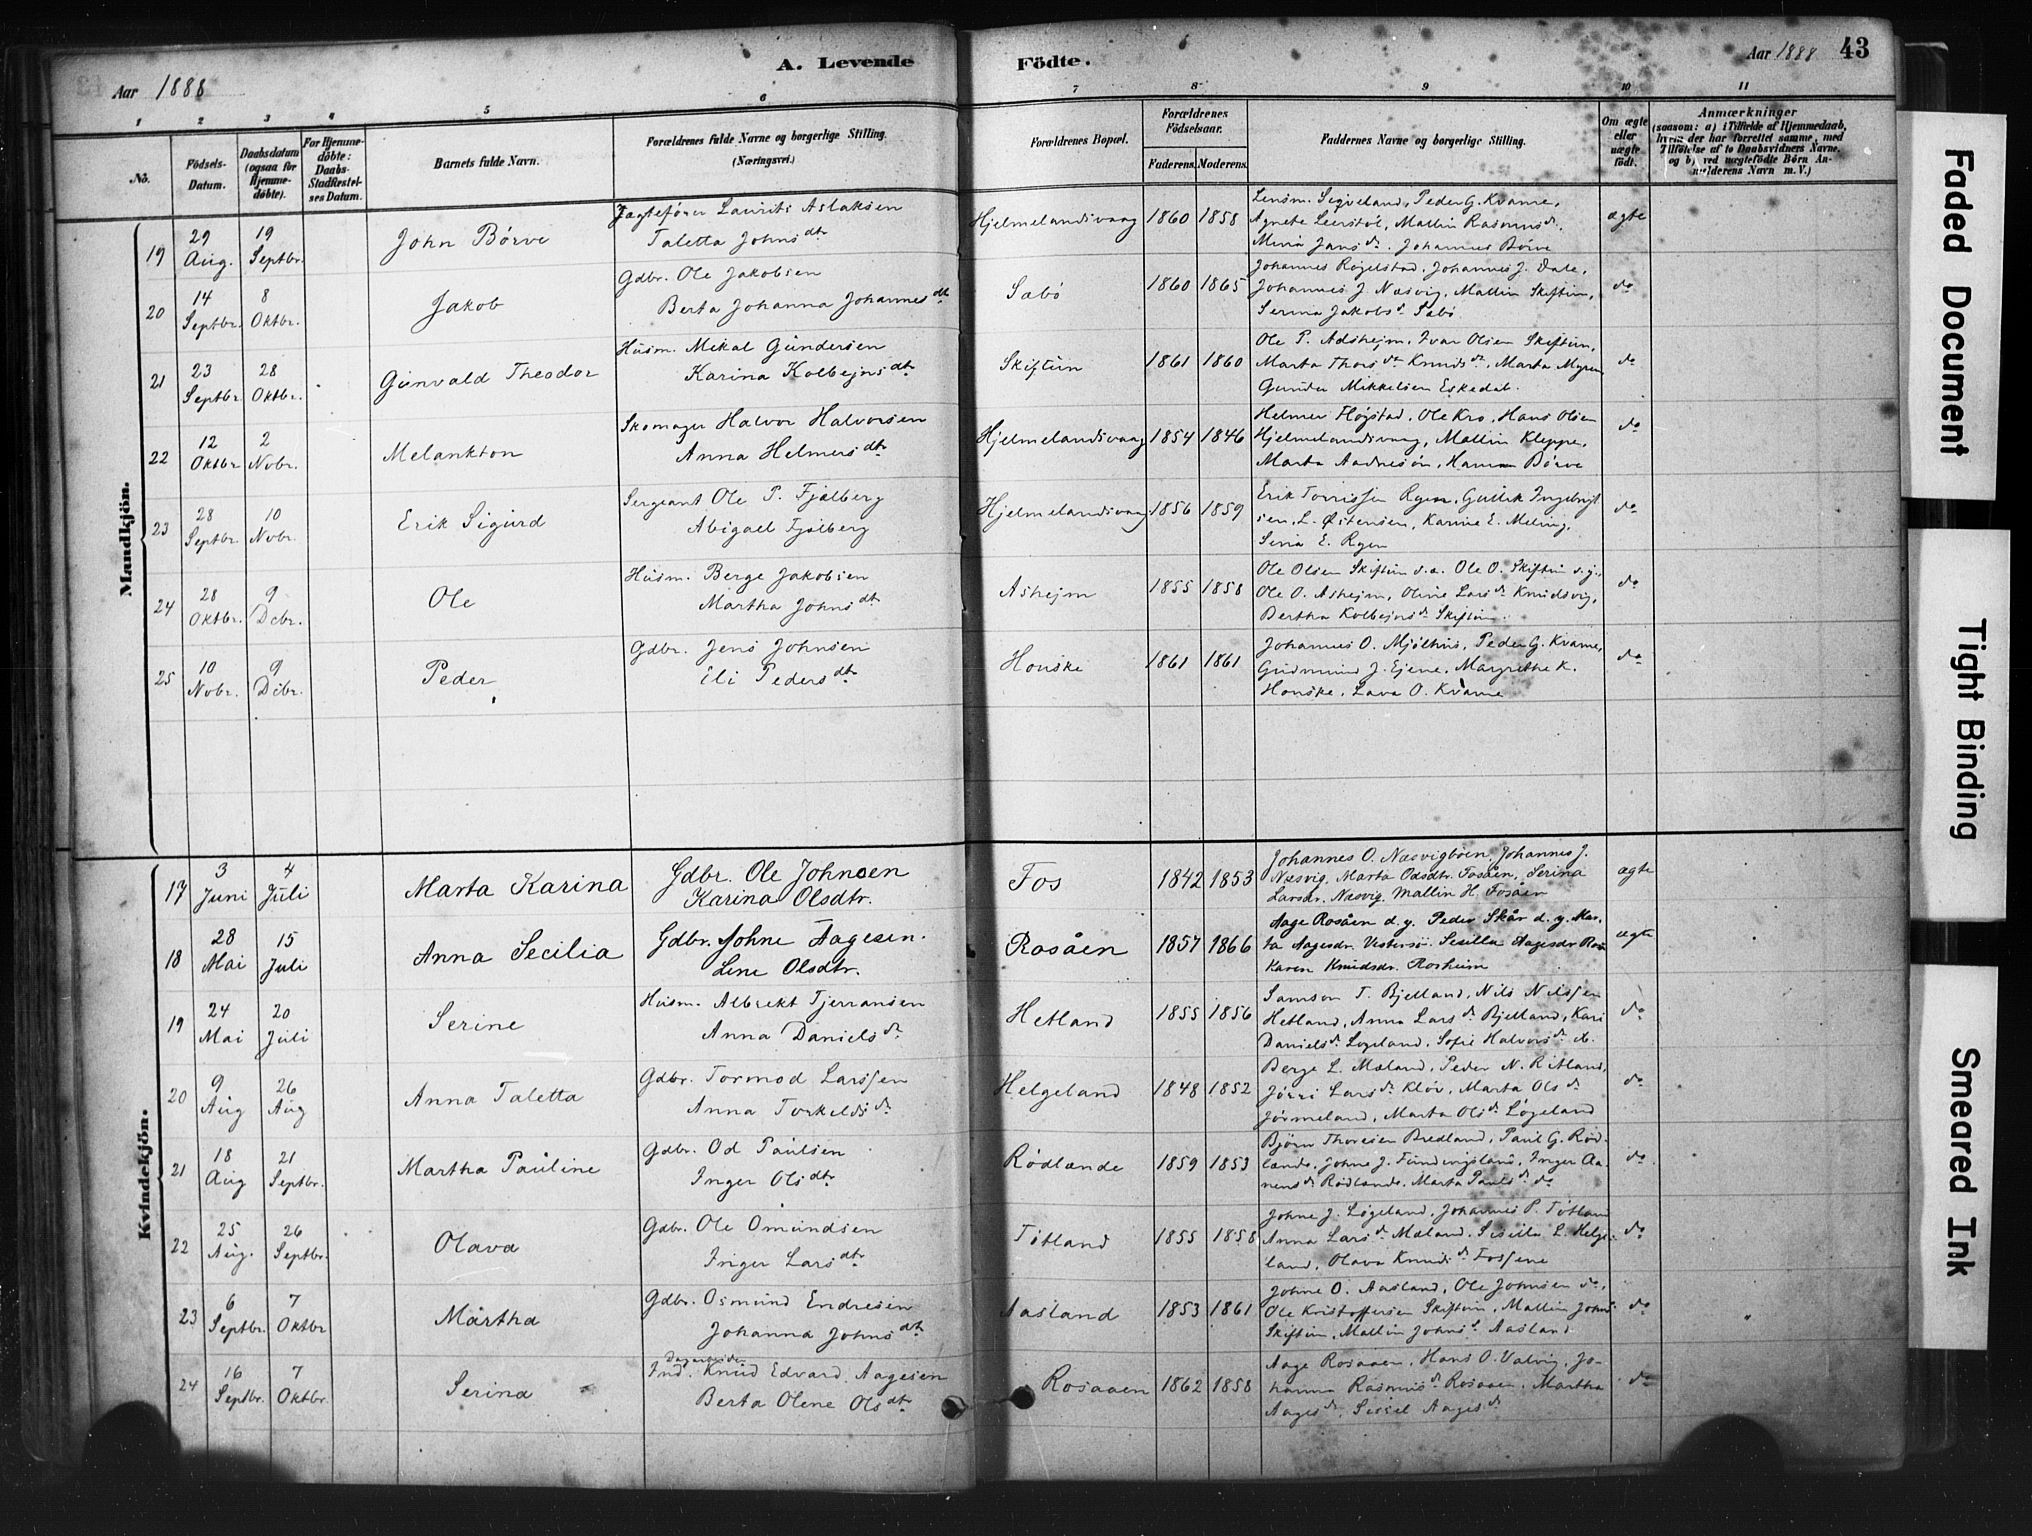 Aar 1888
A. Levende
Födte.
Aar 1888
43
1 2 3 4 5 6 7 8 9 10 11
No.
Födsels-Datum.
Daabsdatum (ogsaa for Hjemme-döbte).
For Hjemme-döbte: Daabs-Stadfæstelses Datum.
Barnets fulde Navn.
Forældrenes fulde Navne og borgerlige Stilling. (Næringsvei.)
Forældrenes Bopæl.
Forældrenes Födselsaar.
Faderens. Moderens.
Faddernes Navne og borgerlige Stilling.
Om ægte eller uægte födt.
Anmærkninger
(saasom: a) i Tilfælde af Hjemmedaab, hvem der har forrettet samme, med Tilföielse af to Daabsvidners Navne, og b) ved uægtefödte Börn Anmelderens Navn m. V.)
Mandkjön.
19 29 Aug. 19 Septbr. John Börve
Jagtefører Laurits Aslaksen
Taletta Johnsdtr
Hjelmelandsvaag 1860 1858
Lensm. Sigveland, Peder G. Kvame,
Agnete Leirstøl, Mallin Rasmusd.,
Johannes Börve
ægte
20 14 Septbr. 8 Oktbr. Jakob
Gdbr. Ole Jakobsen
Berta Johanna Johannesdtr
Sæbø 1860 1865
Johannes Røgelstad, Johannes J. Dale,
Johannes J. Næsvig, Mallin Skiftun,
Serina Jakobsd. Sæbø
do
21 23 Septbr. 28 Oktbr. Gunvald Theodor
Husm. Mikal Gundersen
Karina Kolbejnsdtr
Skiftun 1861 1860
Ole P. Adsheim, Ivar Olsen Skiftun,
Marta Thorsdr Knudsdr, Marta Myren,
Gunder Mikkelsen Eskedal.
do
22 12 Oktbr 2 Novbr. Melankton
Skomager Halvor Halvorsen
Anna Helmersdtr
Hjelmelandsvaag 1854 1846
Helmer Høgstad, Ole Kro, Hans Olsen
Hjelmelandsvaag, Mallin Kleppe,
Marta Aadnesøn, Hanna Börve
do
23 28 Septbr. 10 Novbr. Erik Sigurd
Sergeant Ole P. Fjølberg
Abigael Fjølberg
Hjelmelandsvaag 1856 1859
Erik Torrissen Ryen, Gullik Ingebrigt
sen, L. Østensen, Karine E. Meling,
Siria E. Ryen
do
24 28 Oktbr. 9 Dcbr. Ole
Husm. Berge Jakobsen
Martha Johnsdtr
Ashejm 1855 1858
Ole Olsen Skiftun d.æ. Ole O. Skiftun d.y.,
Ole O. Ashejm, Oline Larsd. Knudsvig,
Bertha Kolbejnsd. Skiftun.
do
25 10 Novbr. 9 Dcbr. Peder
Gdbr. Jens Johnsen
Eli Pedersdtr
Houske 1861 1861
Johannes O. Mjølhus, Peder G. Kvame,
Gudmund J. Ejene, Margrethe K.
Houske, Lava O. Kvame
do
Kvindekjön.
17 3 Juni 4 Juli Marta Karina
Gdbr. Ole Johnsen
Karina Olsdtr.
Fos 1842 1853
Johannes O. Næsvigbøen, Johannes J.
Næsvig, Marta Osdtr. Fosåen, Serina
Larsdr. Næsvig, Mallin H. Fosåen
ægte
18 28 Mai 15 Juli Anna Secilia
Gdbr. Johne Aagesen.
Line Olsdtr.
Rosåen 1857 1866
Aage Rosåen d. y. Peder Skår d. y. Mar-
ta Aagesdr. Vestersö. Sesilla Aagesdr Ros
Karen Knudsdr. Rosheim
ægte
19 24 Mai 20 Juli Serine
Husm. Albrekt Tjerransen
Anna Danielsdr.
Hetland 1855 1856
Samson T. Bjelland, Nils Nilssen
Hetland, Anna Larsdr Bjelland, Kari
Danielsdr Løgeland, Sofie Halvorsdr do.
do
20 9 Aug 26 Aug Anna Taletta
Gdbr. Tormod Larssen
Anna Torkeldsdr
Helgeland 1848 1852
Berge L. Mæland, Peder N. Ritland,
Jørri Larsdr Kløv, Marta Olsdr
Jørmeland, Marta Olsdr Løgeland
do
21 18 Aug 21 Septbr. Martha Pauline
Gdbr. Od Paulsen
Inger Olsdtr
Rødlænde 1859 1853
Björn Thoresen Bredland, Paul G. Rød-
lande, Johne J. Fundingsland, Inger Aa-
nensdr Rødlande, Marta Paulsdr do
do
22 25 Aug. 26 Septbr. Olava
Gdbr. Ole Omundsen
Inger Larsdtr
Tøtland 1855 1858
Johne J. Løgeland, Johannes P. Tøtland
Anna Larsdr Mæland, Sesilla L. Helge-
land, Olava Knudsdr Fossene
do
23 6 Septbr. 7 Oktbr Martha
Gdbr. Osmund Endresen
Johanna Johnsdtr
Aasland 1853 1861
Johne O. Aasland, Ole Johnsen do,
Ole Kristoffersen Skiftun, Mallin Johns
Skiftun, Mallin Johnsd. Aasland
do
24 16 Septbr. 7 Oktbr. Serina
Dagarbeider
Ind. Knud Edvard Aagesen
Berta Olene Olsdtr
Rosaaen 1862 1858
Aage Rosaaen, Hans O. Valvig, Jo-
hanna Rasmusdr Rosaaen, Martha
Aagesdr, Sissel Aagesdr
do
Faded Document
Tight Binding
Smeared Ink